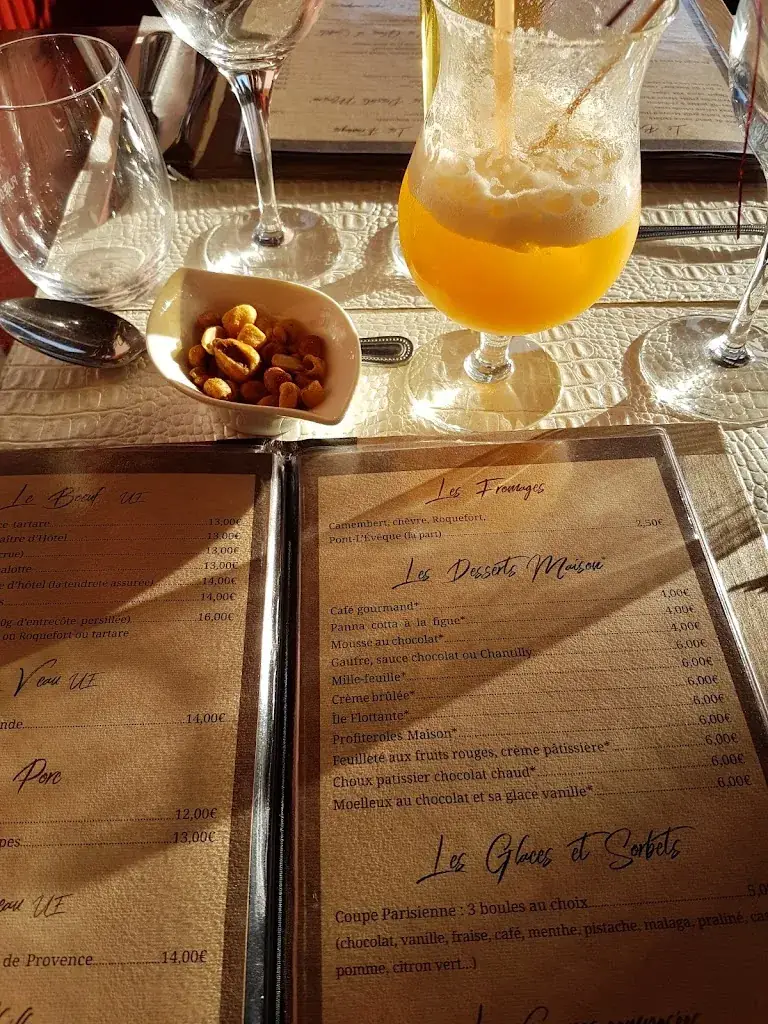 Le Boeuf UE
ce tartare 13,00€
aître d'Hôtel 13,00€
crue) 13,00€
alotte 13,00€
e d'hôtel (la tendreté assurée) 14,00€
s 14,00€
0g d'entrecôte persillée) 16,00€
on Roquefort ou tartare
Veau UE
nde 14,00€
Porc
12,00€
pes 13,00€
eau UE
de Provence 14,00€
Les Fromages
Camembert, chèvre, Roquefort,
Pont-L'Évêque (la part) 2,50€
Les Desserts Maison*
Café gourmand* 4,00€
Panna cotta à la figue* 4,00€
Mousse au chocolat* 4,00€
Gaufre, sauce chocolat ou Chantilly 6,00€
Mille-feuille* 6,00€
Crème brûlée* 6,00€
Île Flottante* 6,00€
Profiteroles Maison* 6,00€
Feuilleté aux fruits rouges, crème pâtissière* 6,00€
Choux patissier chocolat chaud* 6,00€
Moelleux au chocolat et sa glace vanille* 6,00€
Les Glaces et Sorbets
Coupe Parisienne : 3 boules au choix 5,0
(chocolat, vanille, fraise, café, menthe, pistache, malaga, praliné, cas
pomme, citron vert...)